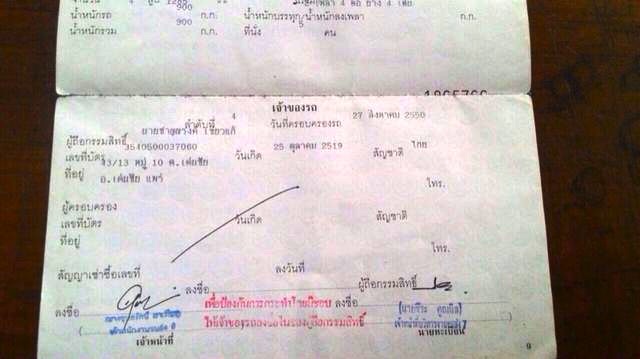 900
น้ำหนักรถ ก.ก. น้ำหนักบรรทุก/น้ำหนักลงเพลา ก.ก.
900 5
น้ำหนักรวม ก.ก. ที่นั่ง คน
เจ้าของรถ
ลำดับที่ 4 วันที่ครอบครองรถ 27 สิงหาคม 2550
ผู้ถือกรรมสิทธิ์
เลขที่บัตร 3540500037060 วันเกิด 25 ตุลาคม 2519 สัญชาติ ไทย
43/13 หมู่ 10 ต.เด่นชัย
ที่อยู่ อ.เด่นชัย แพร่ โทร.
ผู้ครอบครอง
เลขที่บัตร วันเกิด สัญชาติ
ที่อยู่ โทร.
สัญญาเช่าซื้อเลขที่ ลงวันที่
ลงชื่อ ผู้ถือกรรมสิทธิ์
ลงชื่อ เพื่อป้องกันการกระทำโดยมิชอบ ลงชื่อ
ให้เจ้าของรถลงชื่อในช่องผู้ถือกรรมสิทธิ์
เจ้าหน้าที่ นายทะเบียน
9